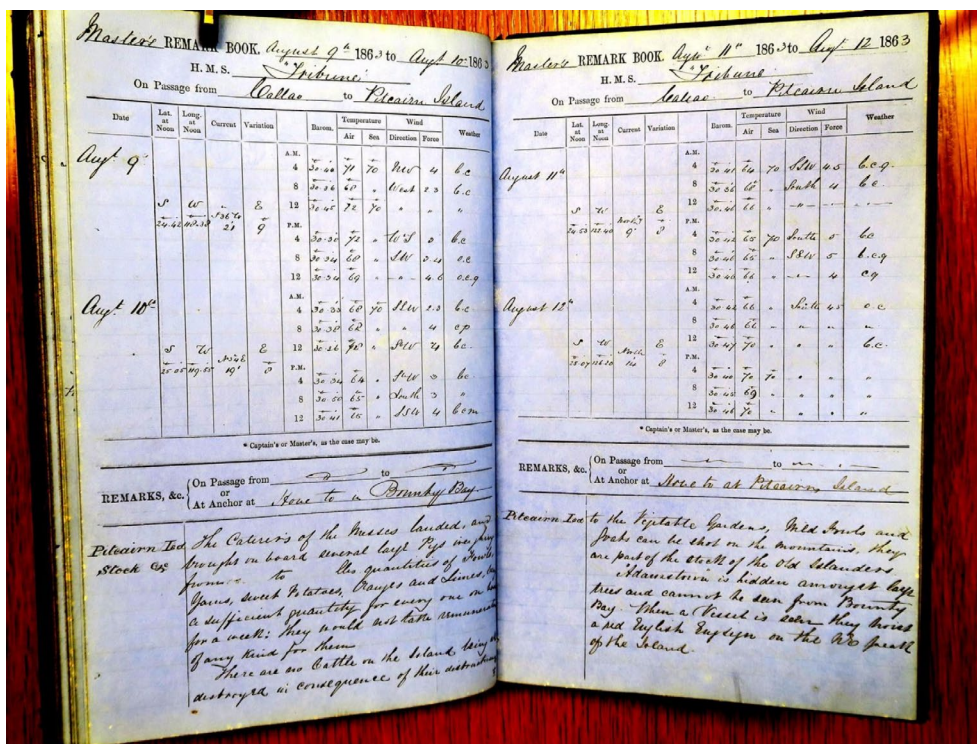 Master's REMARK BOOK. August 9th 1863 to Augt 10th 1863
H. M. S. "Tribune"
On Passage from Callao to Pitcairn Island
Date Lat. at Noon Long. at Noon Current Variation Barom. Temperature Air Sea Wind Direction Force Weather
Augt 9th
A.M.
4 30.40 71 70 NW 4 b.c
8 30.36 68 " West 2.3 b.c
S W E 12 30.45 72 70 " " "
24.42 118.38 21 9 P.M.
4 30.30 72 " W'S 3 b.c
8 30.34 68 " SW 3.4 o.c
12 30.34 69 " " 4.6 o.c.q
Augt 10th
A.M.
4 30.33 68 70 SSW 2.3 b.c
8 30.38 68 " " 4 c.p
S W E 12 30.36 " SW b.c
25.05 119.55 19' 8 P.M.
4 30.34 64 " 3 b.c
8 30.50 65 " South 3 "
12 30.41 65 " SSW 4 b.c.m
* Captain's or Master's, as the case may be.
REMARKS, &c. On Passage from to
or
At Anchor at Hove to in Bounty Bay
Pitcairn Isd The Caterers of the Messes landed, and
Stock &c brought on board several large Pigs
from to lbs quantities of Fowls,
Yams, sweet Potatoes, Oranges and Limes,
a sufficient quantity for every one on
for a week; they would not take
of any kind for them
There are no Cattle on the Island being
destroyed in consequence of their
Master's REMARK BOOK. Augt 11th 1863 to Augt 12 1863
H. M. S. "Tribune"
On Passage from Callao to Pitcairn Island
Date Lat. at Noon Long. at Noon Current Variation Barom. Temperature Air Sea Wind Direction Force Weather
August 11th
A.M.
4 30.41 64 70 SSW 4.5 b.c.q.
8 30.36 68 " South 4 b.c
S W E 12 30.46 66 "
24.53 9' 8 P.M.
4 30.42 65 70 South 5 b.c
8 30.46 65 " SSW 5 b.c.q
12 30.46 66 " 4 c.q
August 12th
A.M.
4 30.42 66 " South 4.5 o.c
8 30.46 66 " " " "
S W E 12 30.47 70 " " " b.c.
North 14 8 P.M.
4 30.40 70 70 " " "
8 30.42 69 " " "
12 30.46 70 " " " "
* Captain's or Master's, as the case may be.
REMARKS, &c. On Passage from to
or
At Anchor at Hove to at Pitcairn Island
Pitcairn Isd to the Vegitable Gardens, Wild Fowls and
Goats can be shot on the mountains, they
are part of the stock of the Old Islanders
Adamstown is hidden amongst large
trees and cannot be seen from Bounty
Bay. When a Vessel is seen they hoist
a red English Ensign on the peak
of the Island.